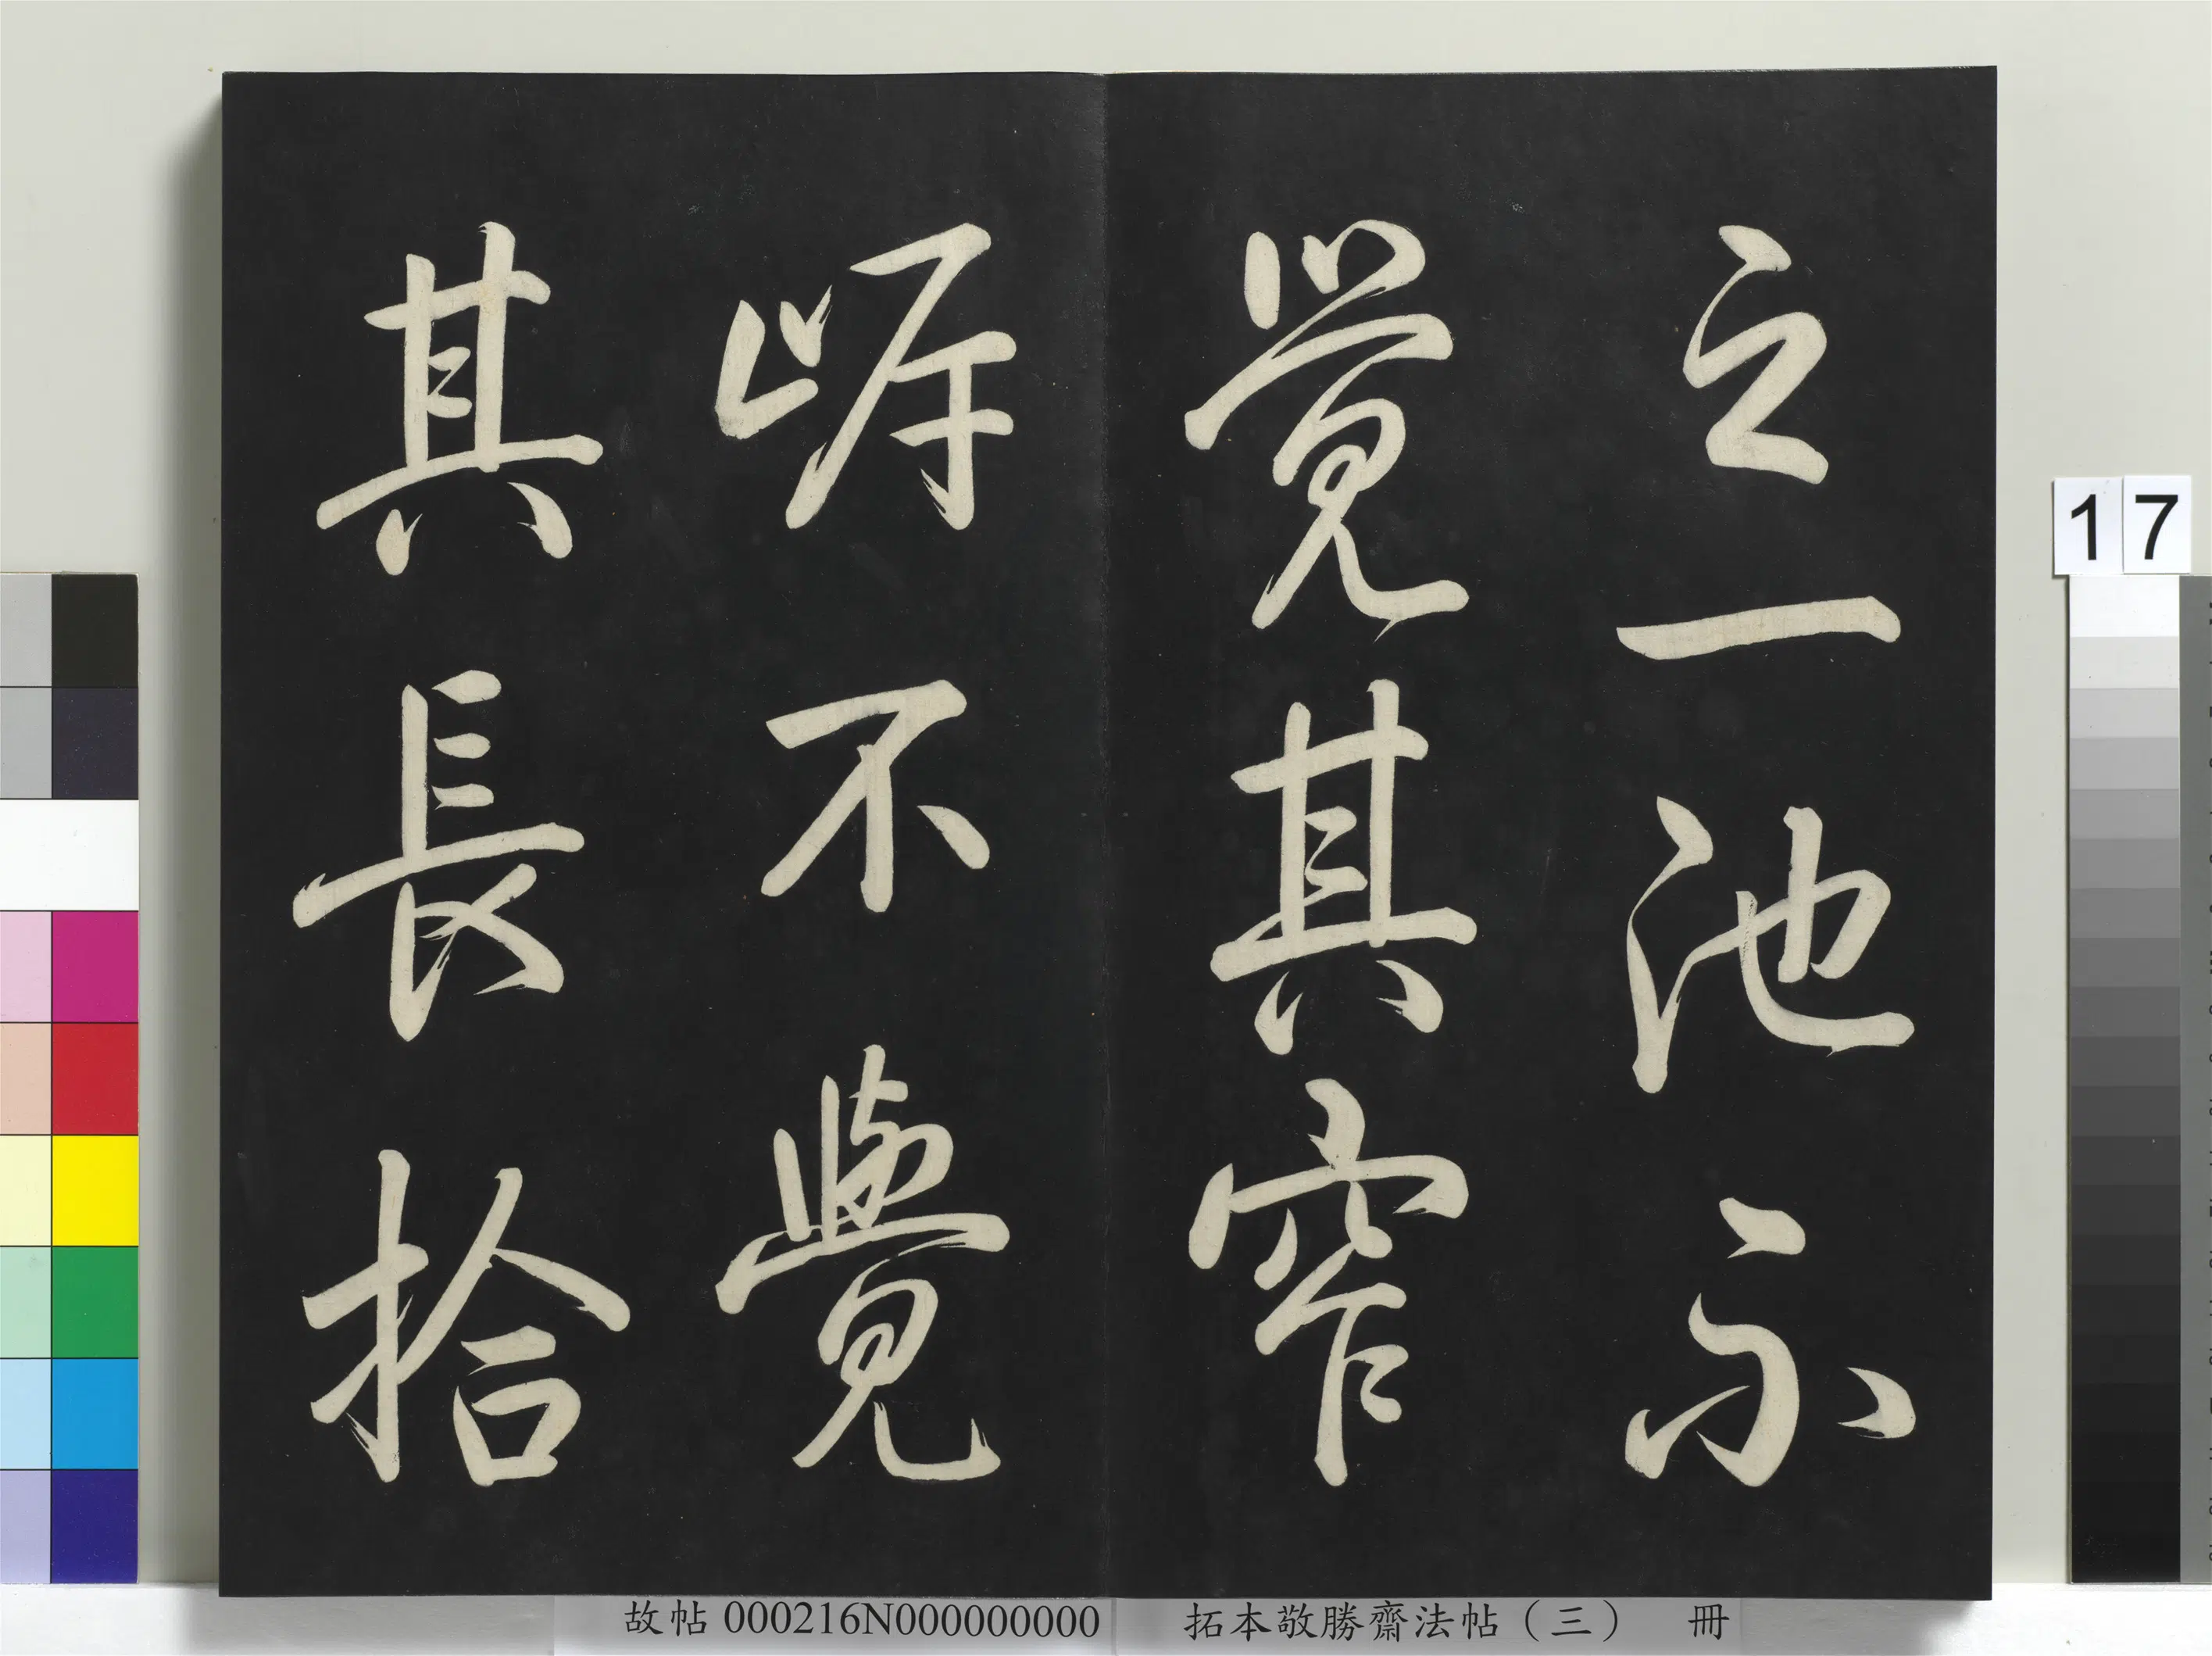 之一池不
覺其窄
岸不覺
其長拾
17
故帖000216N000000000
拓本敬勝齋法帖（三） 冊